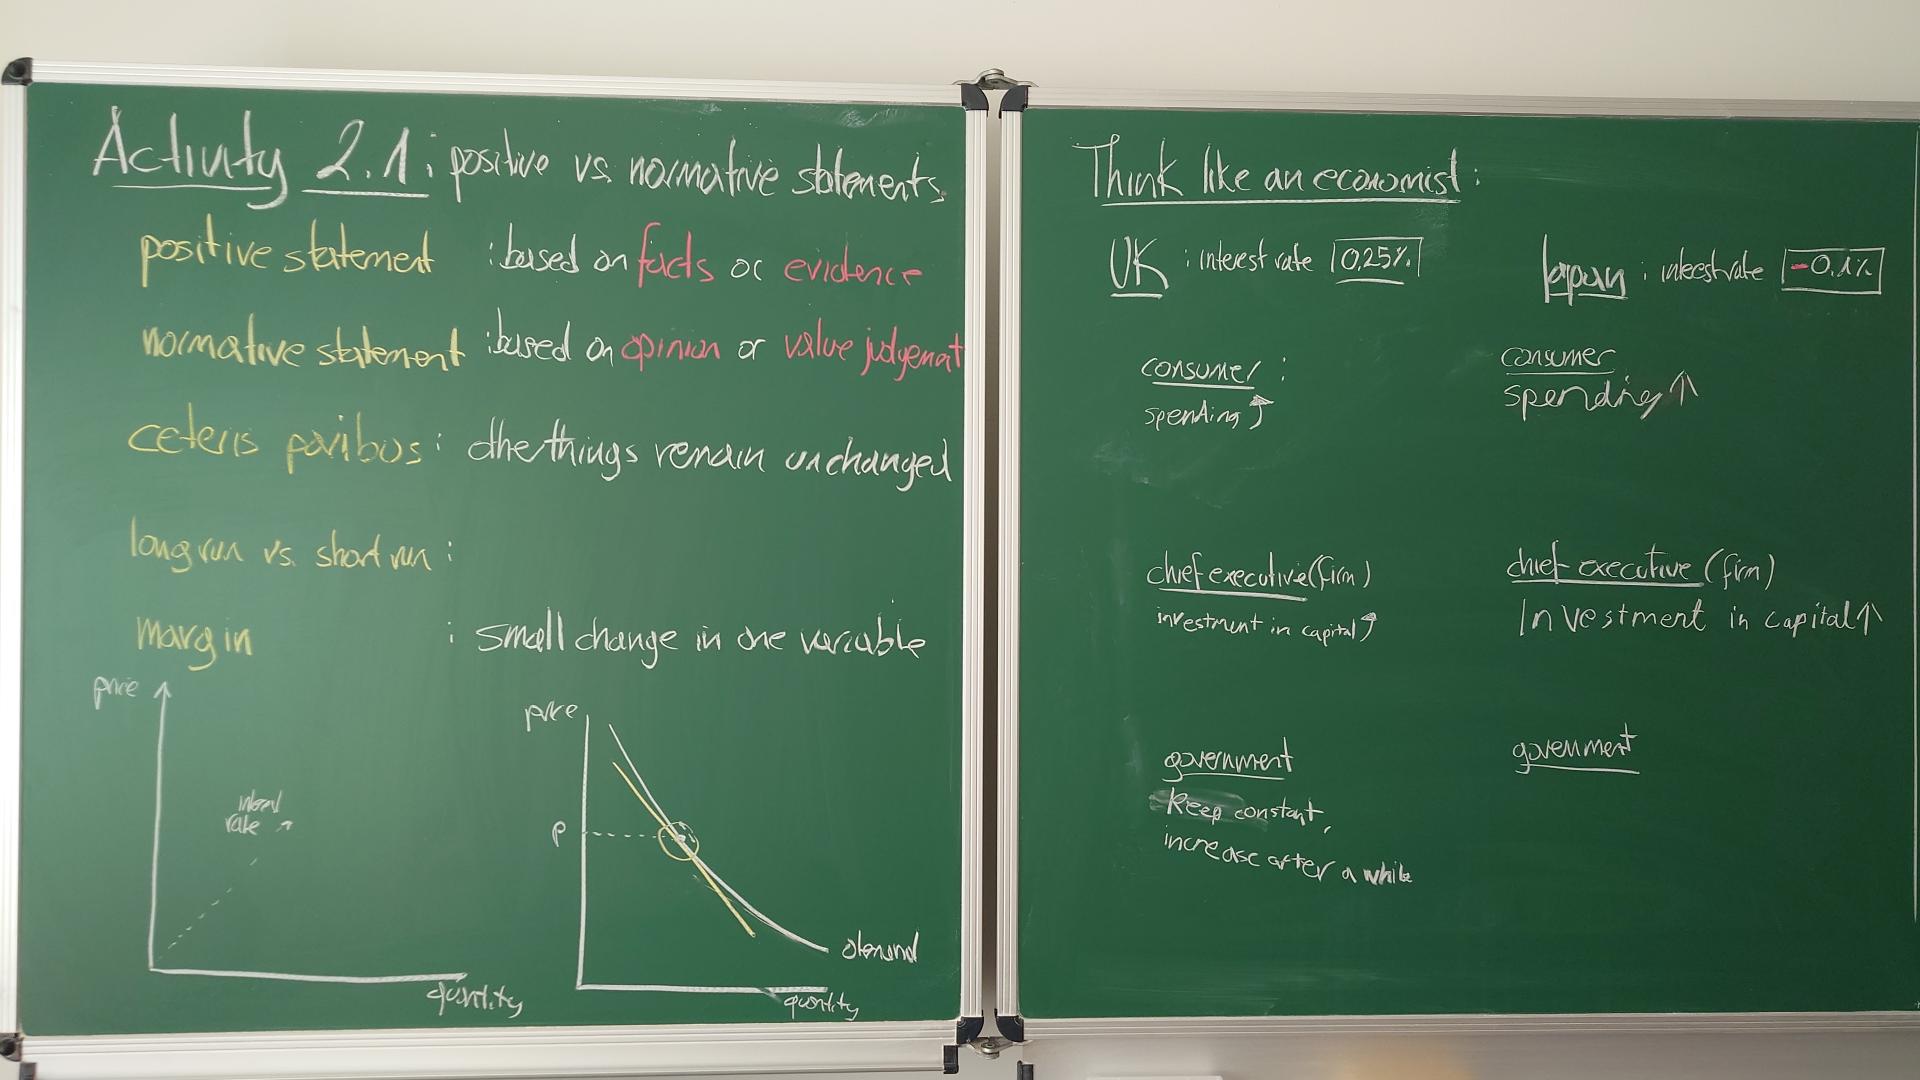 Activity 2.1: positive vs. normative statements
positive statement : based on facts or evidence
normative statement : based on opinion or value judgement
ceteris paribus: other things remain unchanged
long run vs. short run :
margin : small change in one variable
price
rate
quantity
price
P
demand
quantity
Think like an economist:
UK : interest rate 0,25%
consumer :
spending ↑
chief executive (firm)
investment in capital ↑
government
Keep constant,
increase after a while
Japan : interest rate -0.1%
consumer
spending ↑
chief executive (firm)
Investment in capital ↑
government